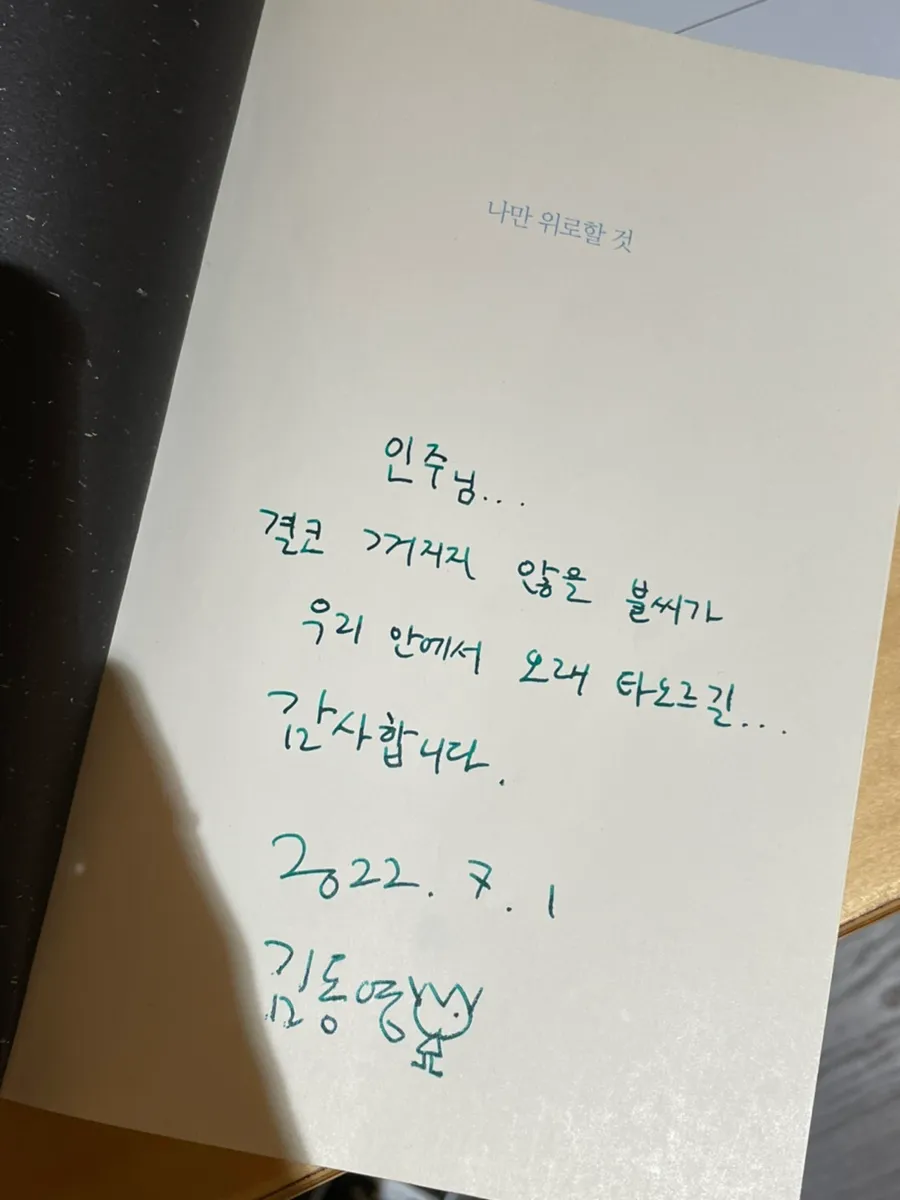 나만 위로할 것
인주님...
결코 꺼지지 않을 불씨가
우리 안에서 오래 타오르길...
감사합니다.
2022. 7. 1
김동영